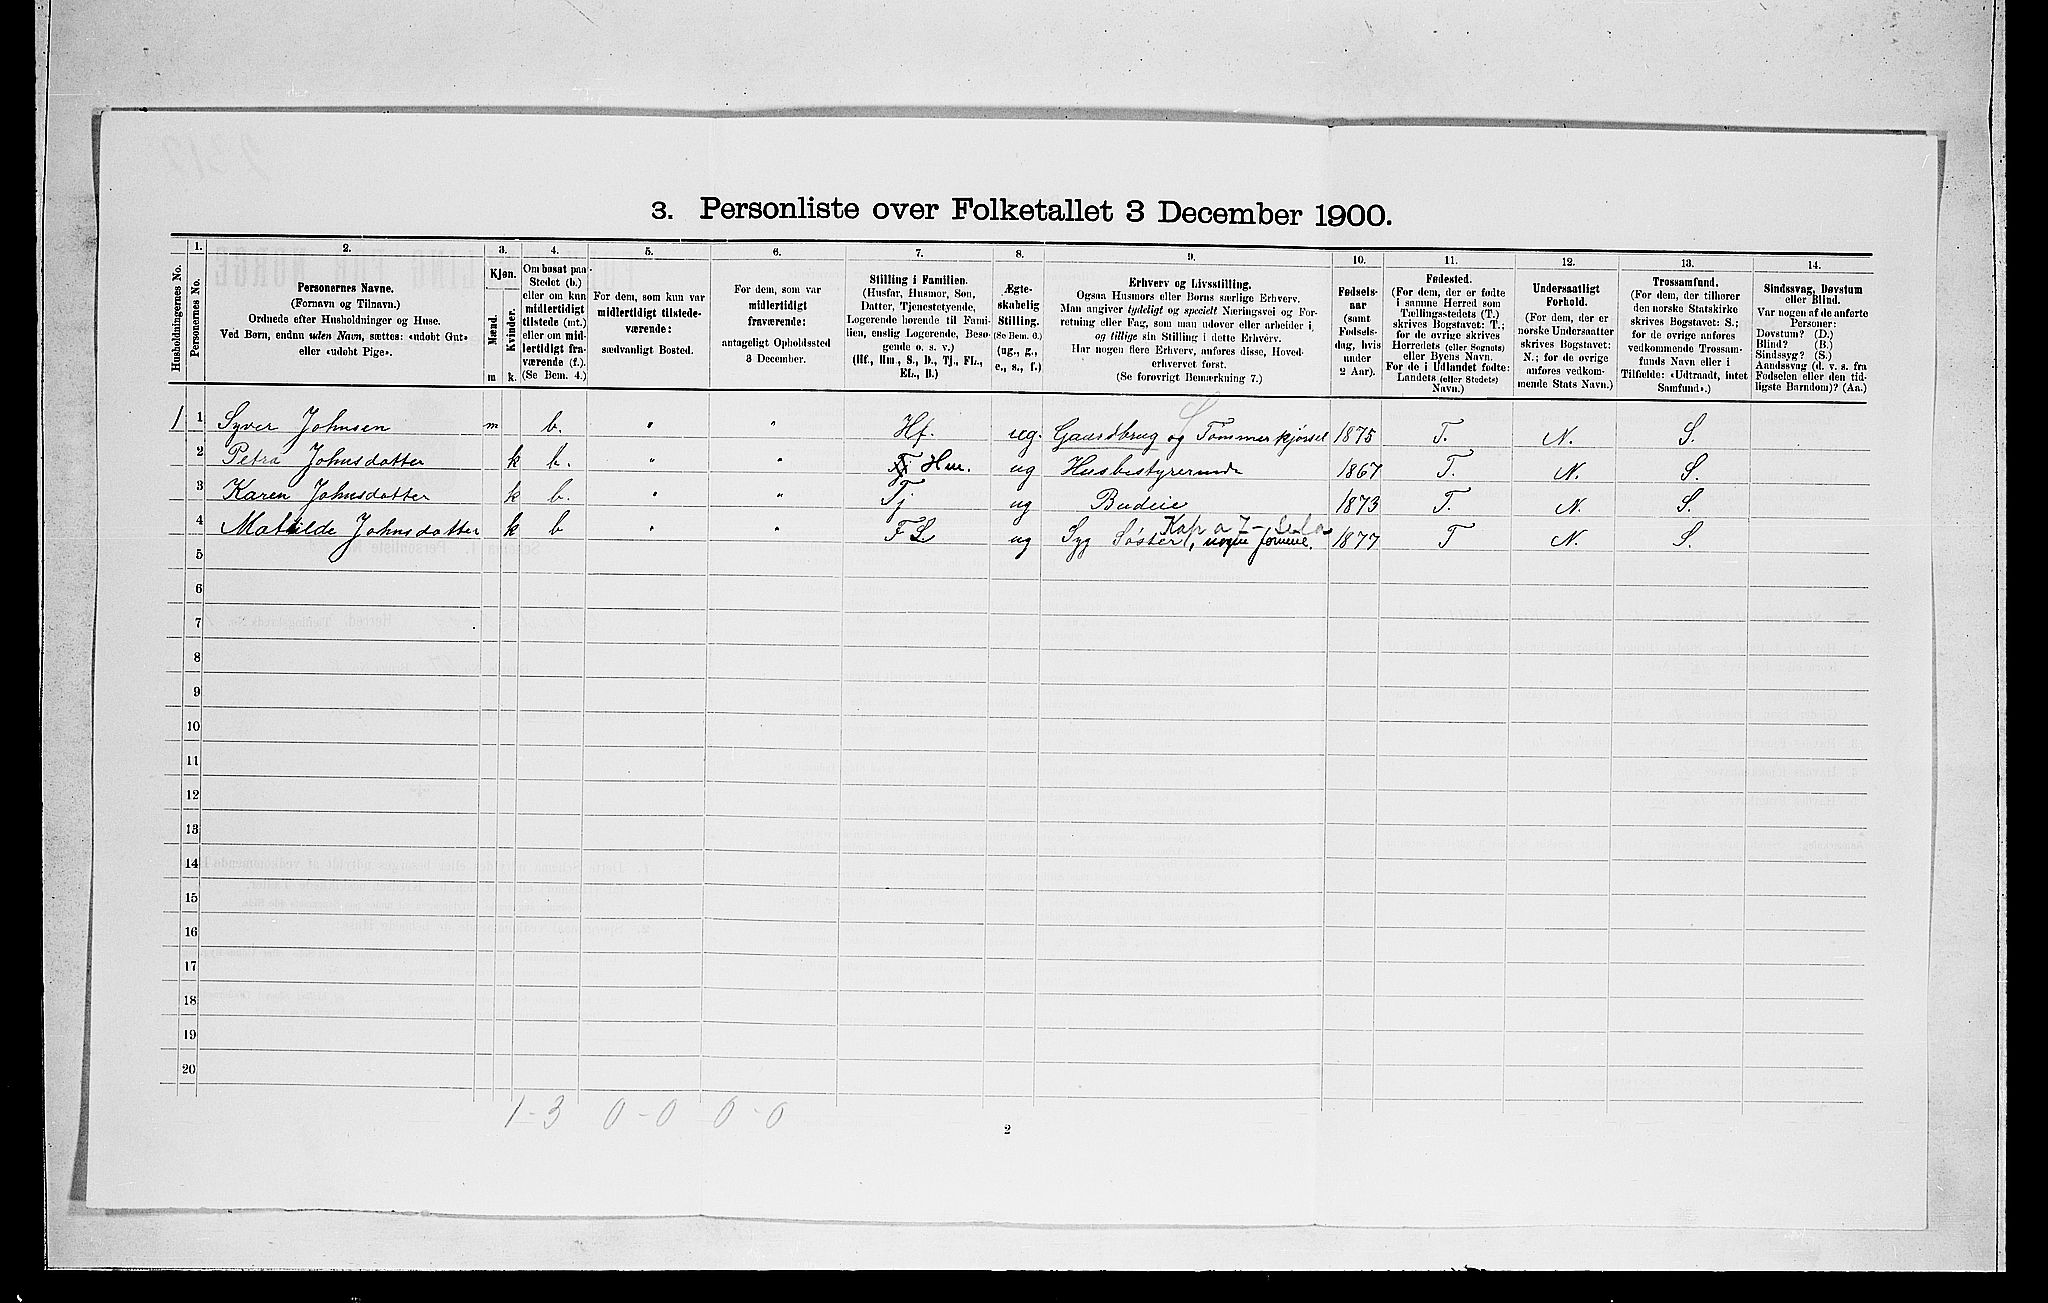 3. Personliste over Folketallet 3 December 1900.
Husholdningernes No.
1.
Personernes No.
2.
Personernes Navne.
(Fornavn og Tilnavn.)
Ordnede efter Husholdninger og Huse.
Ved Børn, endnu uden Navn, sættes: «udøbt Gut»
eller «udøbt Pige».
3.
Kjøn.
Mænd.
Kvinder.
m
k.
4.
Om bosat paa
Stedet (b.)
eller om kun
midlertidigt
tilstede (mt.)
eller om mid-
lertidigt fra-
værende (f.).
(Se Bem. 4.)
5.
For dem, som kun var
midlertidigt tilstede-
værende:
sædvanligt Bosted.
6.
For dem, som var
midlertidigt
fraværende:
antageligt Opholdssted
3 December.
7.
Stilling i Familien.
(Husfar, Husmor, Søn,
Datter, Tjenestetyende,
Logerende hørende til Fami-
lien, enslig Logerende, Besø-
gende o. s. v.)
(Hf., Hm., S., D., Tj., FL.,
EL., B.)
8.
Ægte-
skabelig
Stilling.
(Se Bem. 6.)
(ug., g.,
e., s., f.)
9.
Erhverv og Livsstilling.
Ogsaa Husmors eller Børns særlige Erhverv.
Man angiver tydeligt og specielt Næringsvei og For-
retning eller Fag, som man udøver eller arbeider i,
og tillige sin Stilling i dette Erhverv.
Har nogen flere Erhverv, anføres disse, Hoved-
erhvervet først.
(Se forøvrigt Bemærkning 7.)
10.
Fødsels-
aar
(samt
Fødsels-
dag, hvis
under
2 Aar).
11.
Fødested.
(For dem, der er fødte
i samme Herred som
Tællingsstedets (T.)
skrives Bogstavet: T.;
for de øvrige skrives
Herredets (eller Sognets)
eller Byens Navn.
For de i Udlandet fødte:
Landets (eller Stedets)
Navn.)
12.
Undersaatligt
Forhold.
(For dem, der er
norske Undersaatter
skrives Bogstavet:
N.; for de øvrige
anføres vedkom-
mende Stats Navn.)
13.
Trossamfund.
(For dem, der tilhører
den norske Statskirke
skrives Bogstavet: S.;
for de øvrige anføres
vedkommende Trossam-
funds Navn eller i
Tilfælde: «Udtraadt, intet
Samfund».)
14.
Sindssvag, Døvstum
eller Blind.
Var nogen af de anførte
Personer:
Døvstum? (D.)
Blind? (B.)
Sindssyg? (S.)
Aandssvag (d. v. s. fra
Fødselen eller den tid-
ligste Barndom)? (Aa.)
1 1 Syver Johnsen m b. " " Hf. ug. Gaardbrug og Tømmerkjørsel 1875 T. N. S.
2 Petra Johnsdatter k b. " " Tj Hm. ug Husbestyrerinde 1867 T. N. S.
3 Karen Johnsdatter k b. " " Tj ug Budeie 1873 T. N. S.
4 Mathilde Johnsdatter k b " " FL ug Syg Søster, 1877 T N. S.
5
6
7
8
9
10
11
12
13
14
15
16
17
18
19
20
1-3 0-0 0-0
2